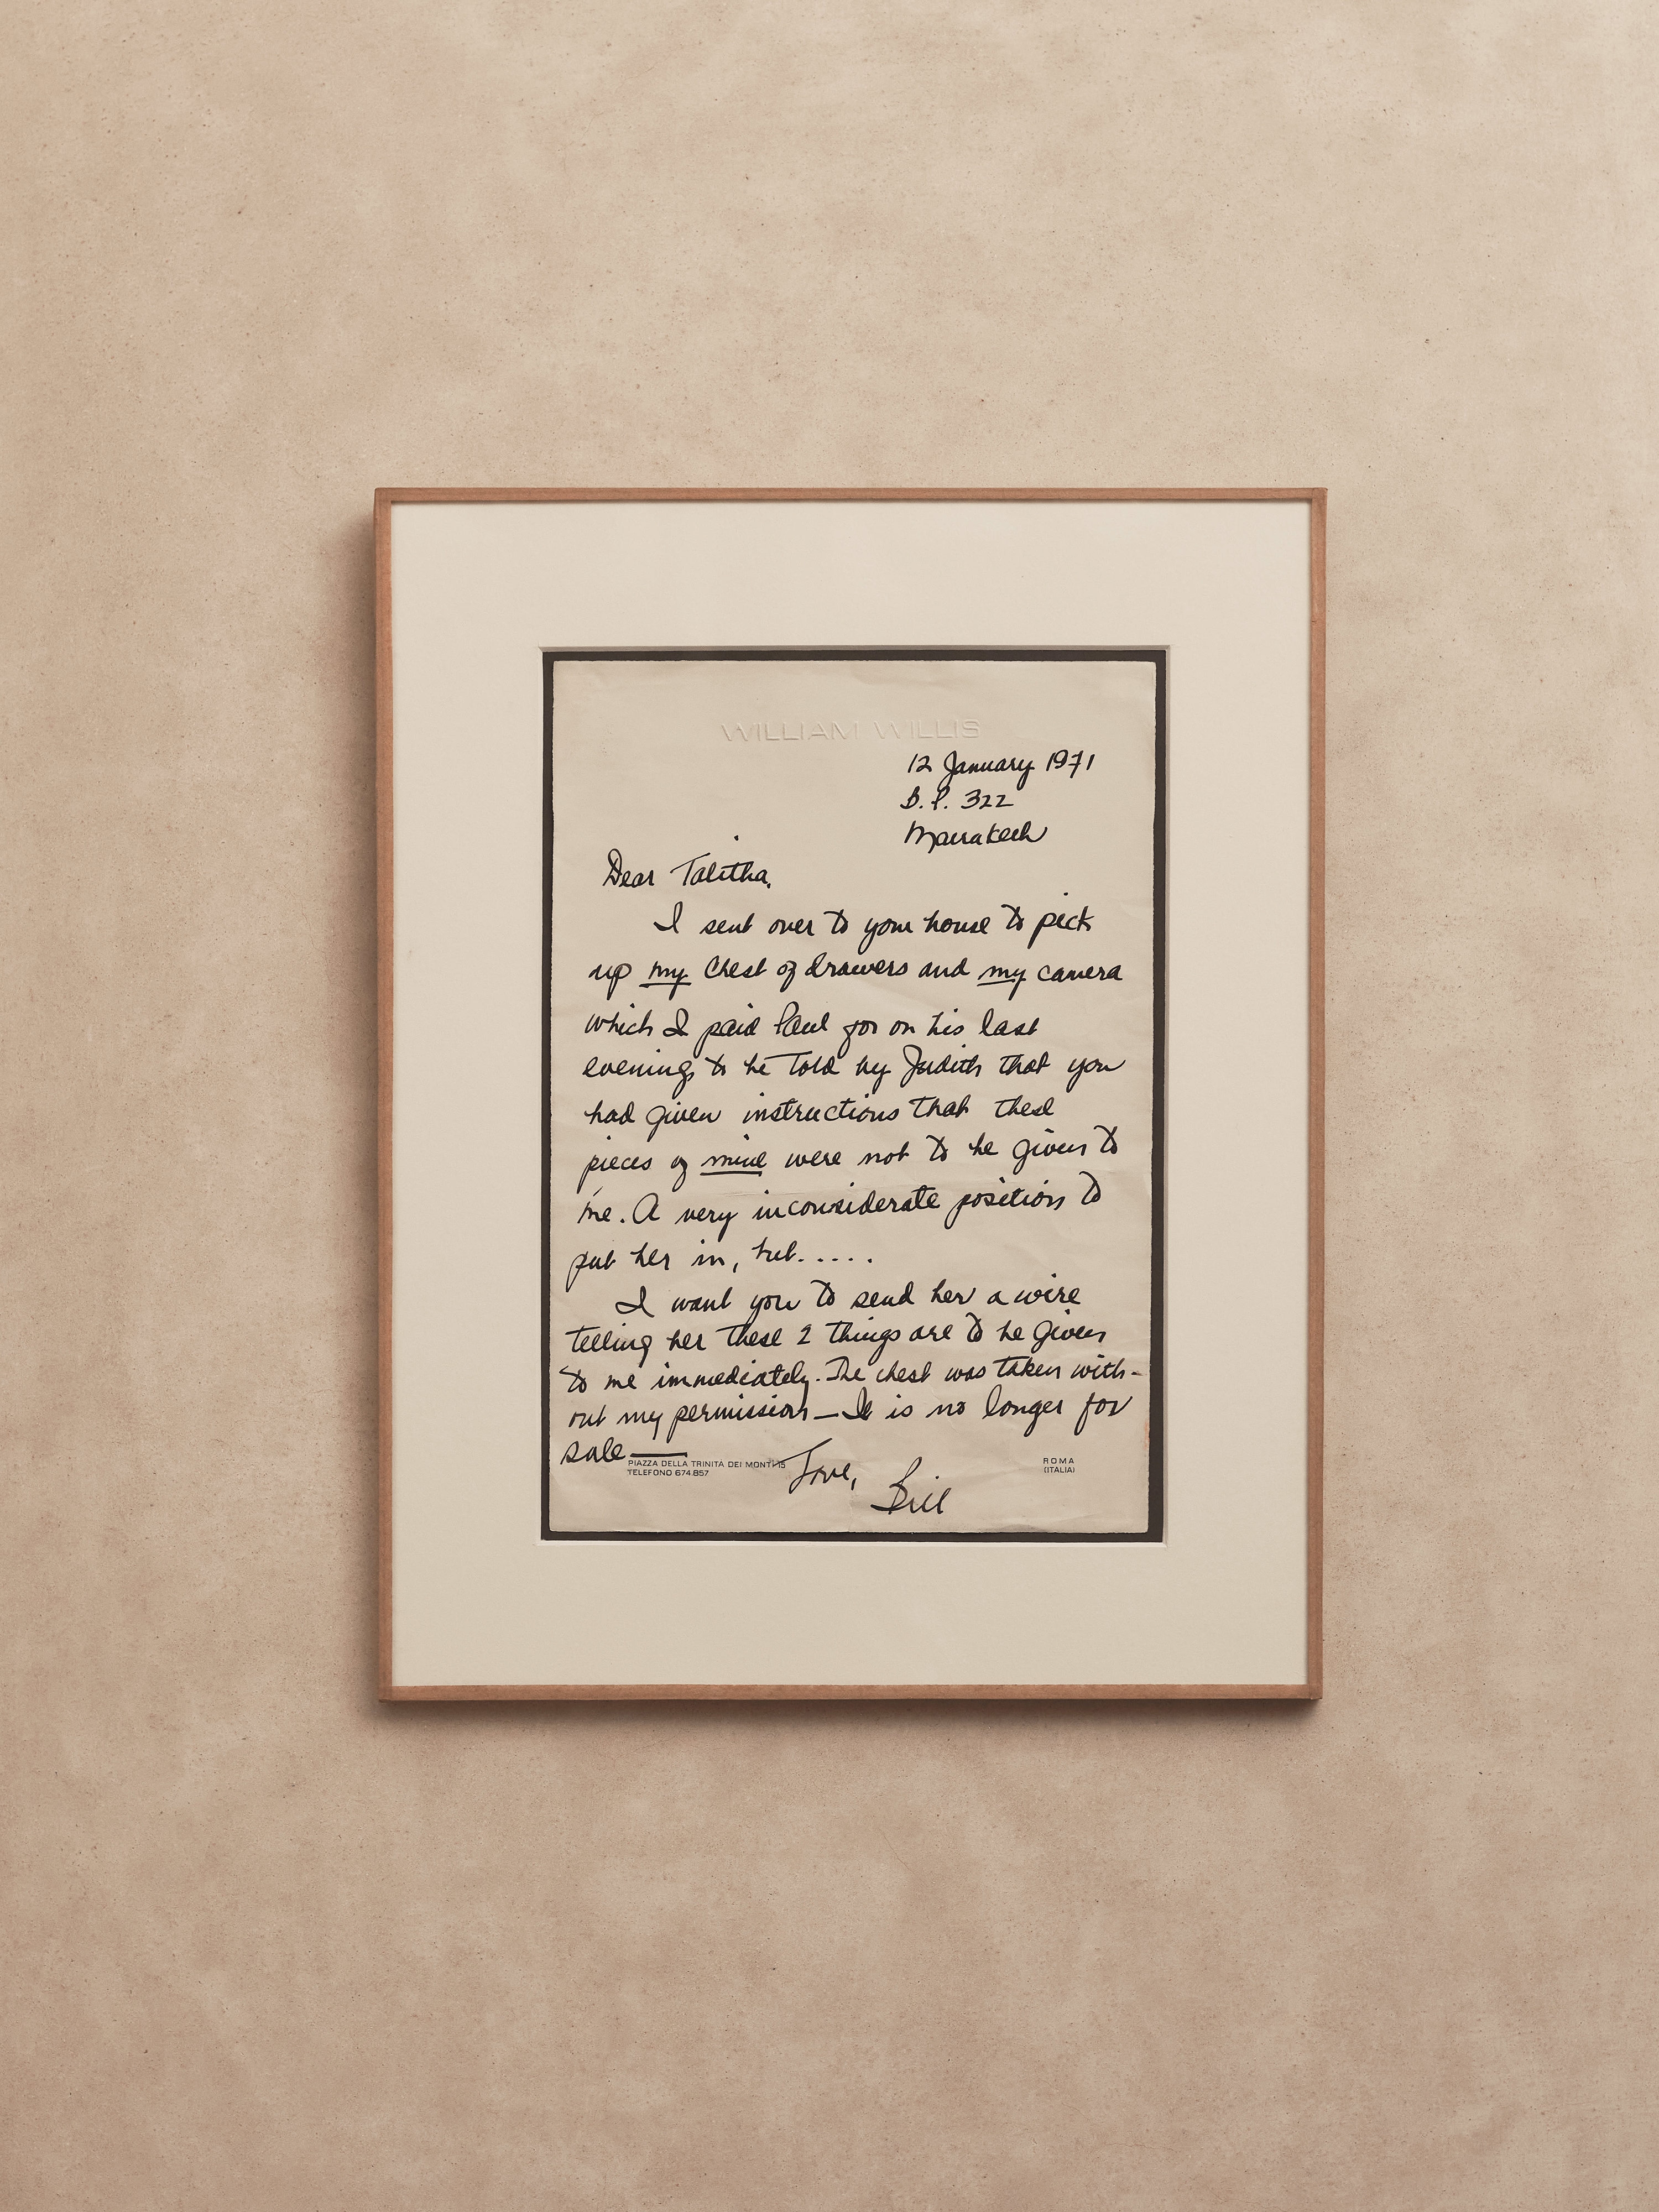 WILLIAM WILLIS
12 January 1971
B.P. 322
Marrakech
Dear Talitha,
I sent over to your house to pick
up my chest of drawers and my camera
which I paid Paul for on his last
evening to be told by Judith that you
had given instructions that these
pieces of mine were not to be given to
me. A very inconsiderate position to
put her in, but.....
I want you to send her a wire
telling her these 2 things are to be given
to me immediately. The chest was taken with-
out my permission — It is no longer for
sale —
PIAZZA DELLA TRINITA DEI MONTI 15
TELEFONO 674.857
Love,
Bill
ROMA
(ITALIA)